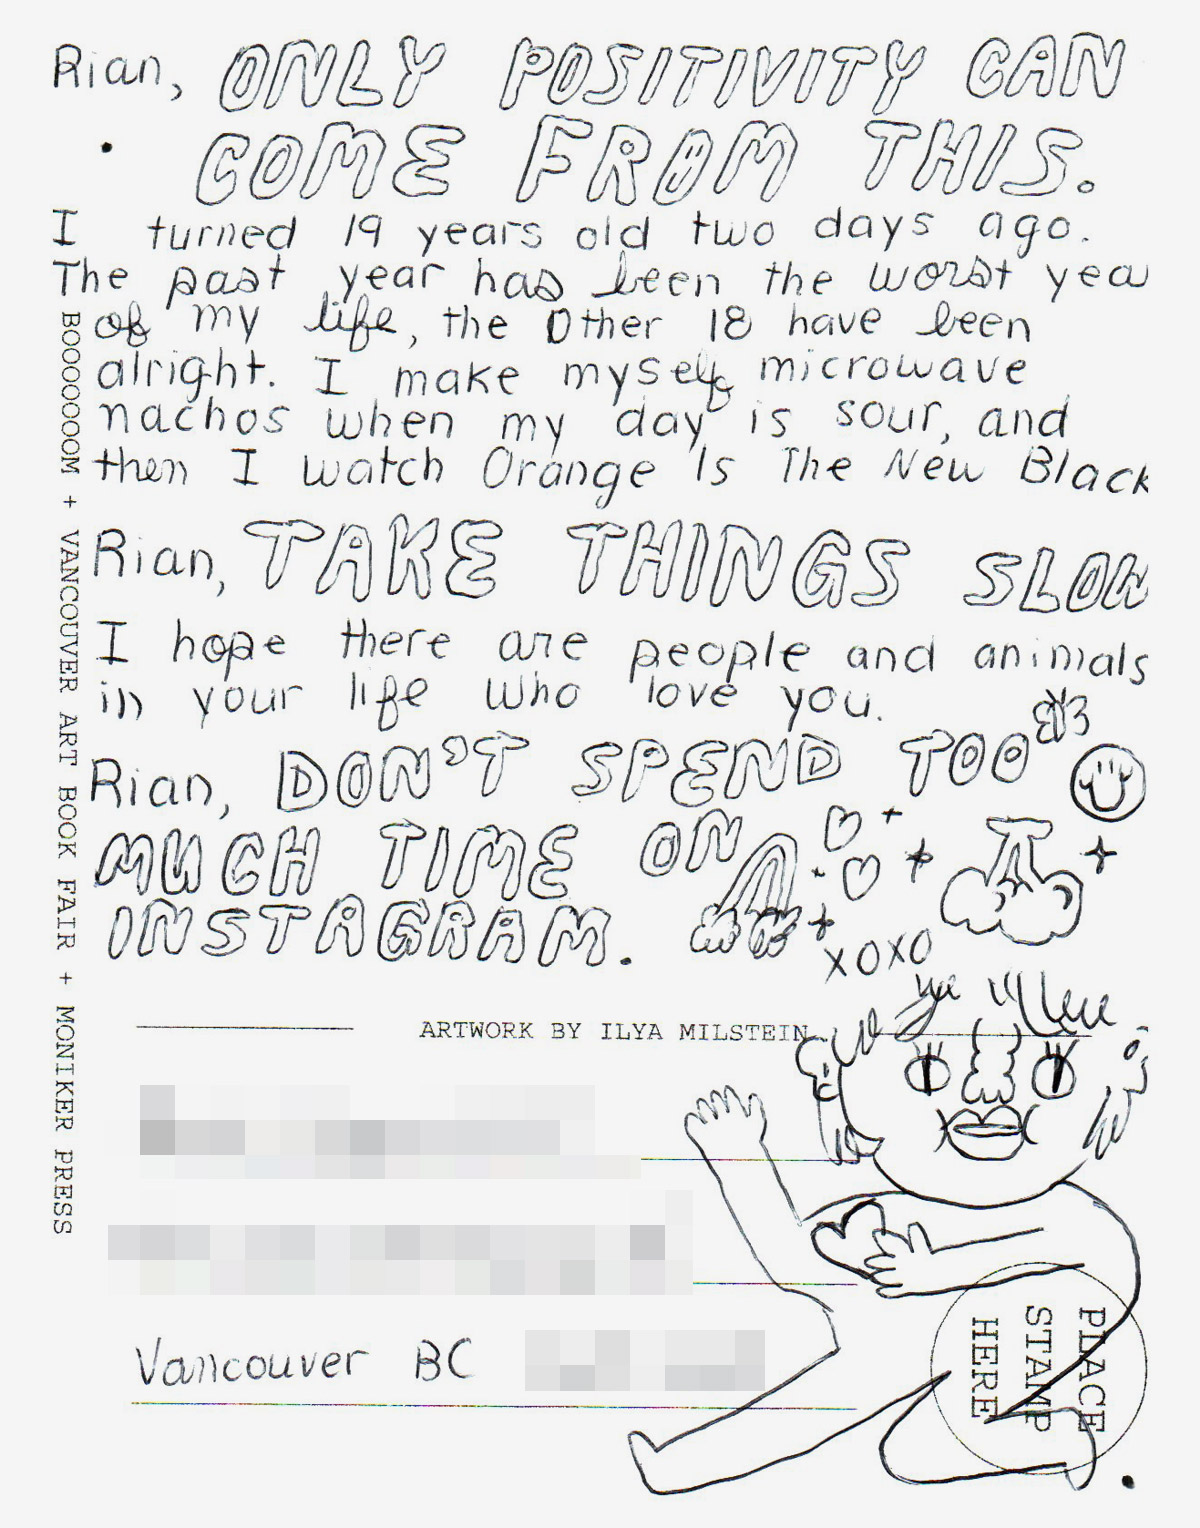 Rian, ONLY POSITIVITY CAN
COME FROM THIS.
I turned 19 years old two days ago.
The past year has been the worst year
of my life, the other 18 have been
alright. I make myself microwave
nachos when my day is sour, and
then I watch Orange Is The New Black
Rian, TAKE THINGS SLOW
I hope there are people and animals
in your life who love you.
Rian, DON'T SPEND TOO
MUCH TIME ON
INSTAGRAM.
XOXO
ARTWORK BY ILYA MILSTEIN
Vancouver BC
PLACE
STAMP
HERE
BOOOOOOOM + VANCOUVER ART BOOK FAIR + MONIKER PRESS